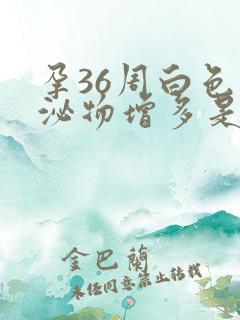 孕36周白色
泌物增多是
金巴蘭
未经同意禁止转载